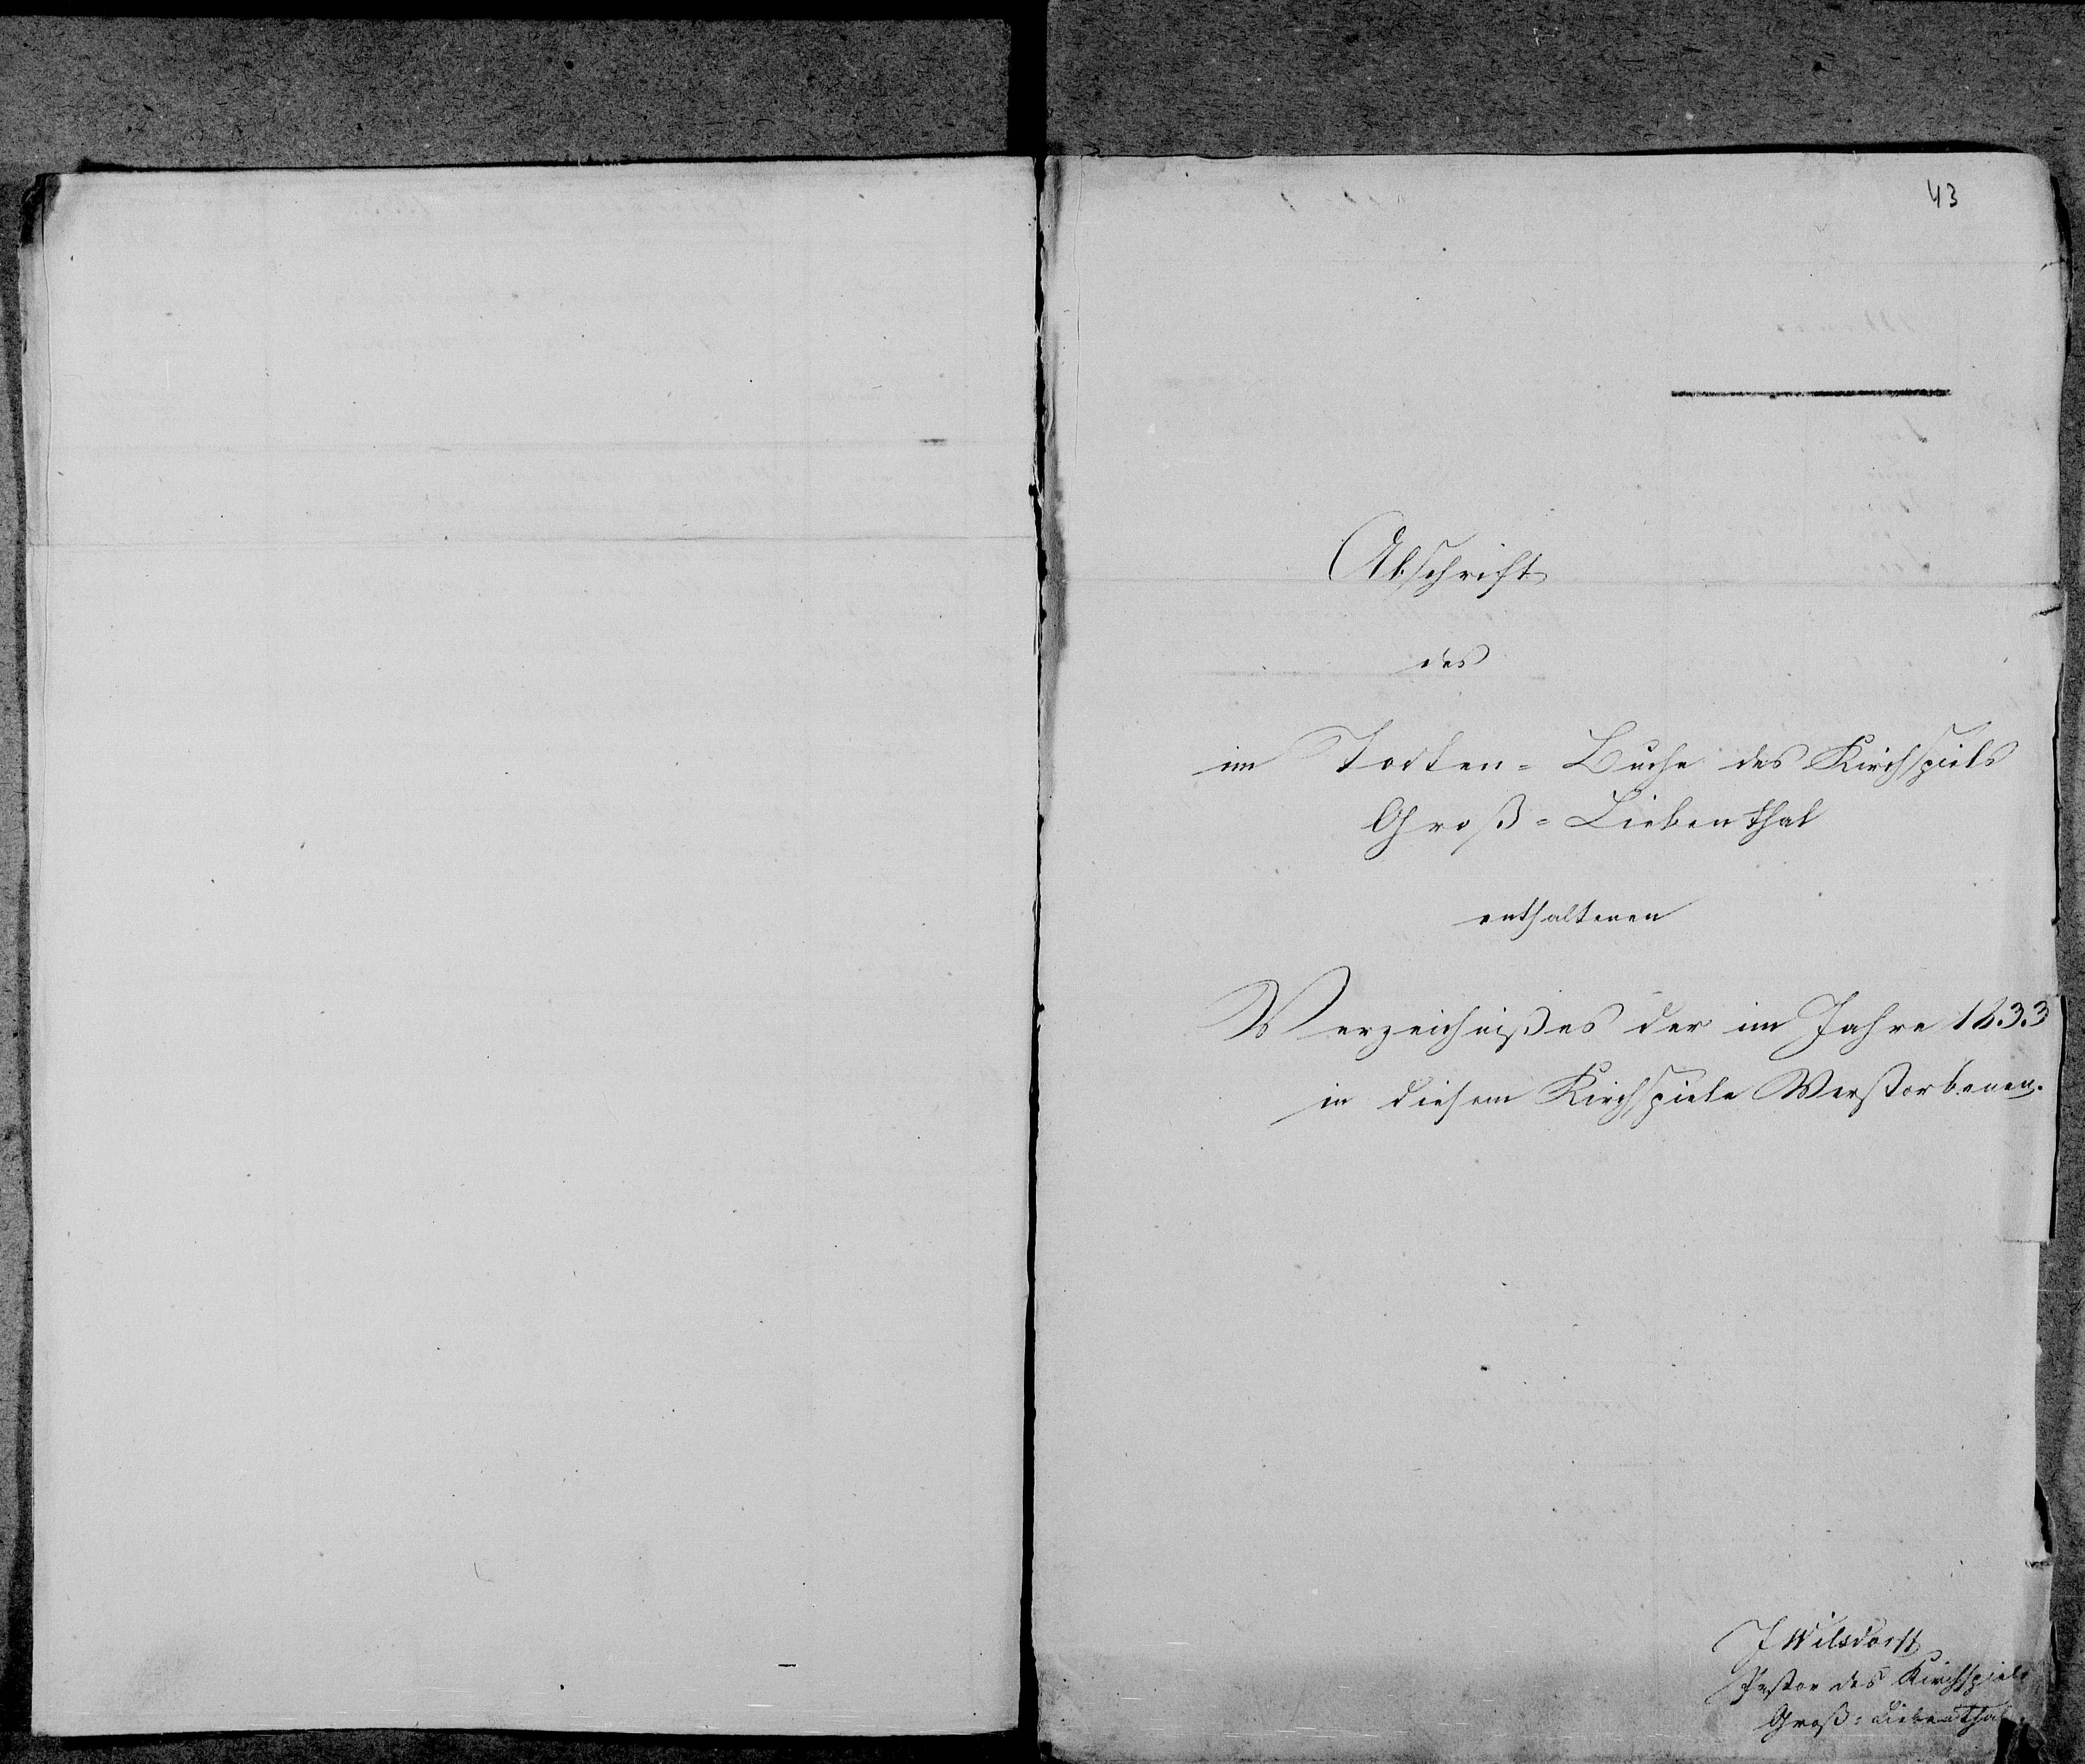 43
Abschrift
des
im Todten=Buche des Kirchspiels
Groß=Liebenthal
enthaltenen
Verzeichnißes der im Jahre 1833
in diesem Kirchspiele Verstorbenen.
J Wilsdorff
Pastor des Kirchspiels
Groß=Liebenthal.